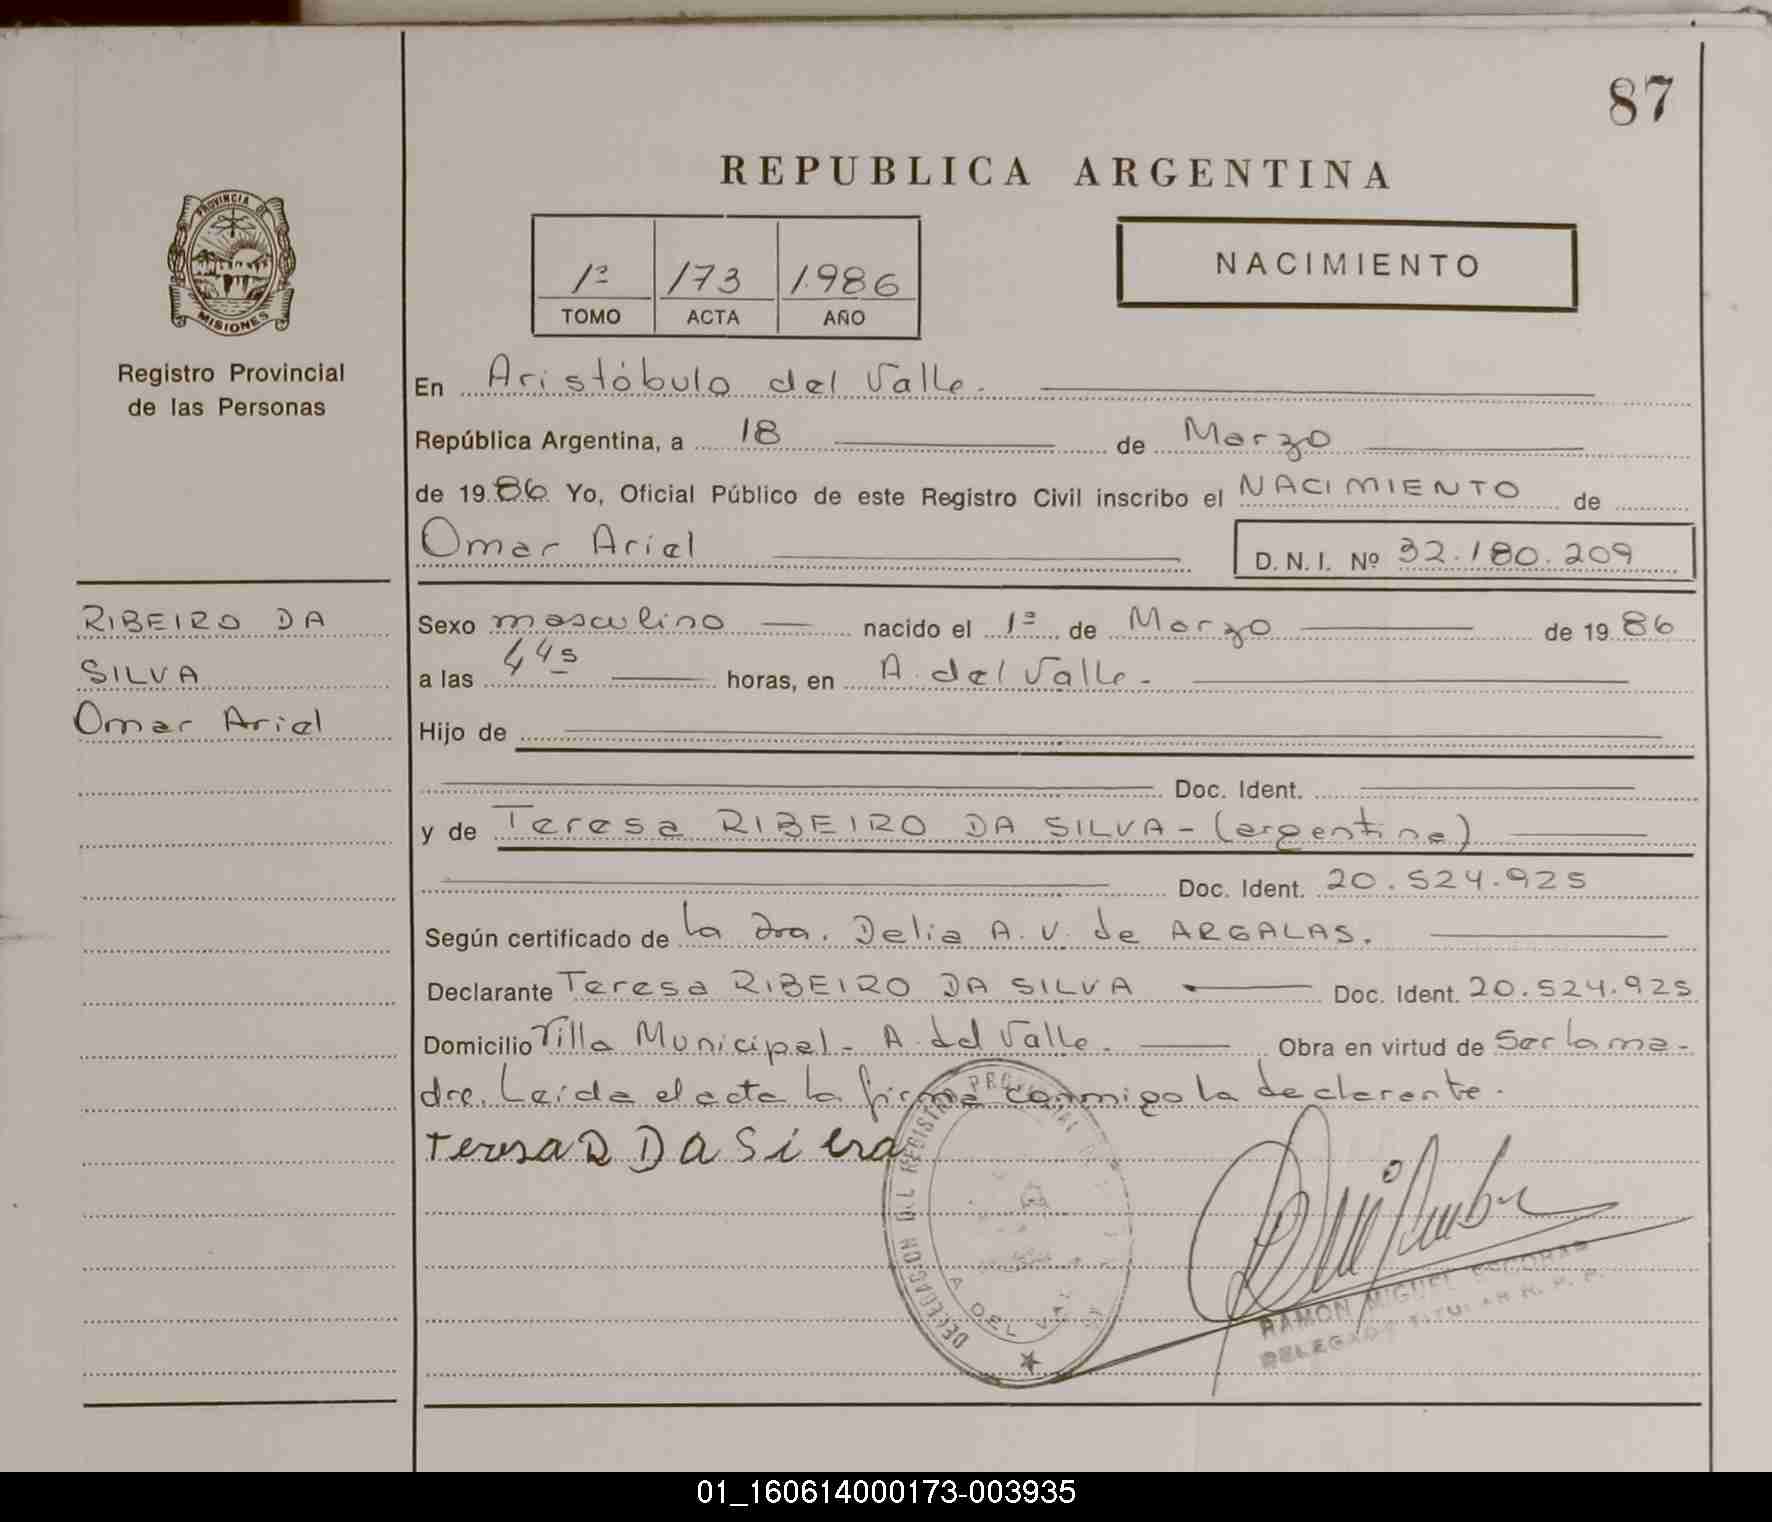 87
REPUBLICA ARGENTINA
PROVINCIA DE
MISIONES
Registro Provincial
de las Personas
1º 173 1.986
TOMO ACTA AÑO
NACIMIENTO
En Aristóbulo del Valle.
República Argentina, a 18 de Marzo
de 19 86 Yo, Oficial Público de este Registro Civil inscribo el NACIMIENTO de
Omar Ariel
D. N. I. Nº 32.180.209
RIBEIRO DA
SILVA
Omar Ariel
Sexo masculino nacido el 1º de Marzo de 19 86
a las 4 45 horas, en A. del Valle.-
Hijo de
Doc. Ident.
y de Teresa RIBEIRO DA SILVA - (argentina)
Doc. Ident. 20.524.925
Según certificado de la Dra. Delia A. V. de ARGALAS.
Declarante Teresa RIBEIRO DA SILVA Doc. Ident. 20.524.925
Domicilio Villa Municipal - A. del Valle. Obra en virtud de Ser la ma-
dre. Leída el acta la firma conmigo la declarante.
Teresa R DA Silva
DELEGACION DEL REGISTRO PROVINCIAL
A DEL VALLE
RAMON MIGUEL ESCOBAR
DELEGADO TITULAR R. P. P.
01_160614000173-003935